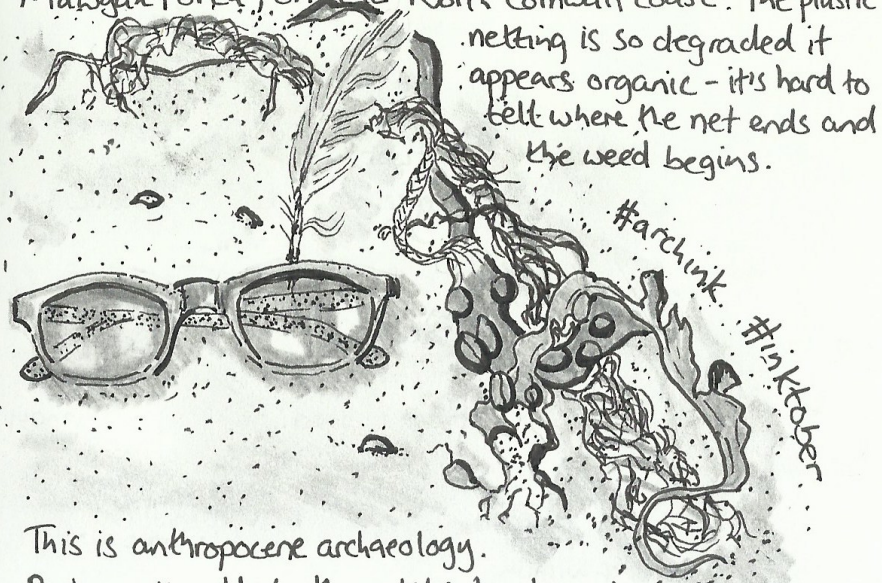 Mawgan Porth, on the North Cornwall coast. The plastic
netting is so degraded it
appears organic - it's hard to
tell where the net ends and
the weed begins.
#archink
#inktober
This is anthropocene archaeology.